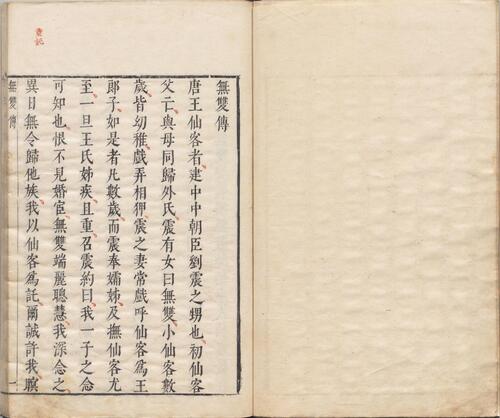 無雙傳
唐王仙客者建中中朝臣劉震之甥也初仙客
父亡與母同歸外氏震有女曰無雙小仙客數
歲皆幼稚戲弄相狎震之妻常戲呼仙客爲王
郎子如是者凡數歲而震奉孀姊及撫仙客尤
至一旦王氏姊疾且重召震約曰我一子之念
可知也恨不見婚宦無雙端麗聰慧我深念之
異日無令歸他族我以仙客爲託爾誠許我瞑
無雙傳
一